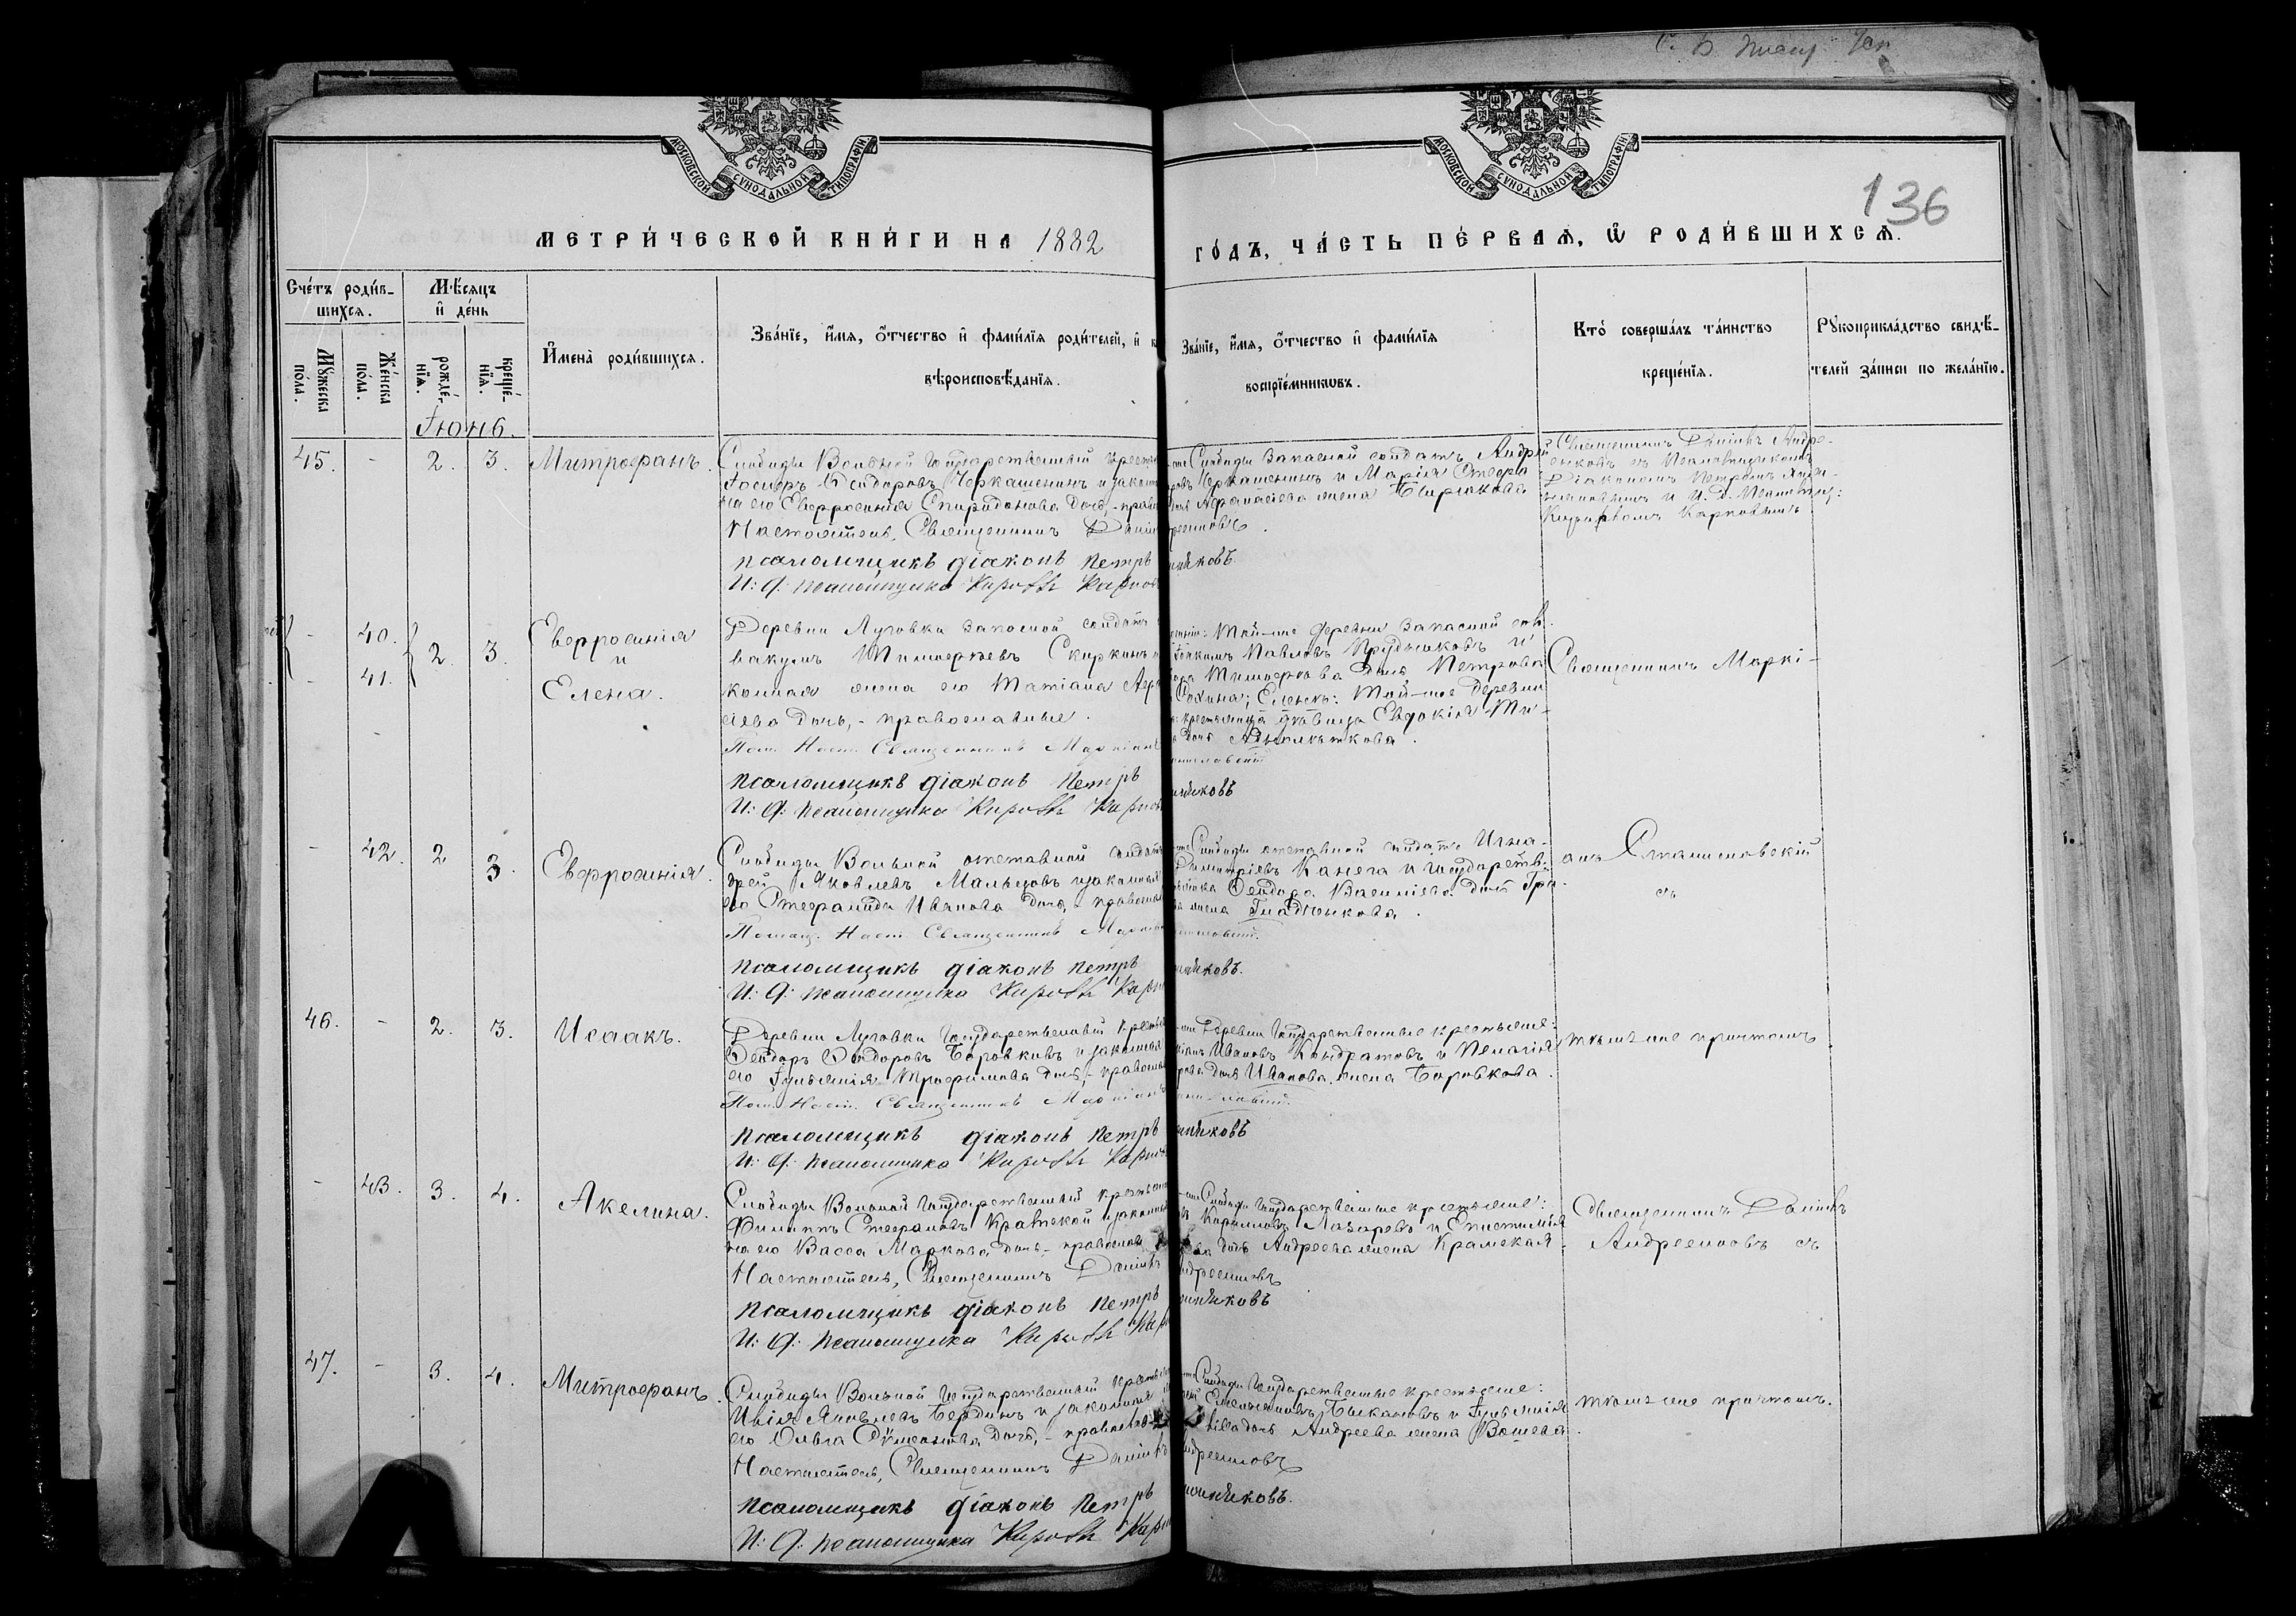 136
МОСКОВСКОЙ СУНОДАЛЬНОЙ ТИПОГРАФІИ
МОСКОВСКОЙ СУНОДАЛЬНОЙ ТИПОГРАФІИ
МЕТРИ́ЧЕСКОЙ КНИ́ГИ НА 1882
ГО́ДЪ, ЧА́СТЬ ПЕ́РВАЯ, Ѿ РОДИ́ВШИХСЯ.
Сче́тъ роди́в-
шихся.
Мѣ́сяцъ
и де́нь
Мꙋ́жеска
по́ла.
Же́нска
по́ла.
рожде́-
нїя.
креще́-
нїя.
Имена̀ роди́вшихся.
Зва́нїе, и́мя, о́тчество и фами́лїя роди́телей, и к
вѣроисповѣ́данїя.
Зва́нїе, и́мя, о́тчество и фами́лїя
воспрїе́мниковъ.
Кто̀ соверша́лъ та́инство
креще́нїя.
Рꙋкоприкла́дство свидѣ́-
телей за́писи по жела́нїю.
Іюнь.
45. - 2. 3. Митрофанъ.
Слободы Вольной Государственный кресть
Ѳеодоровъ Черкашенинъ и закон
на его Евфросинія Спиридонова дочь, - прав
Настоятель, Священникъ Даніи
псаломщикъ діаконъ Петръ
И: д: псаломщика Карпов
Слободы запасной солдатъ Андрей
Черкашенинъ и Марія
Афанасьева жена Бирюкова
Священникъ Даніилъ Андре-
енковъ съ Псаломщикомъ
Діакономъ Петромъ
и И. д. Псаломщ:
Карповымъ
- 40. 2. 3. Евфросинія
и
- 41. Елена.
Деревни Луговки запасной солдатъ
вакумъ Тимофеевъ Скиркинъ
конная жена его Татіана
сіева дочь, - православные.
Пом. Наст. Священникъ Маркіанъ
псаломщикъ діаконъ Петръ
И: д: псаломщика Карпов
Той-же деревни запасной
Павловъ Прудниковъ и
Тимофеева дочь Петрова
Еленѣ: Той-же деревни
дѣвица Евдокія Ти-
дочь
Священникъ Маркі-
- 42. 2 3. Евфросинія.
Слободы Вольной отставной солдатъ
дрей Яковлевъ Мальцовъ и законная
его Стефанида Иванова дочь, - православ
Помощ. Наст. Священникъ Маркіан
псаломщикъ діаконъ Петръ
И: д: псаломщика Карпов
Слободы отставной солдатъ Игна-
Димитріевъ Канега и Государств:
Ѳеодора Васильева дочь Гри-
жена Гладченкова.
анъ Станиславскій
съ
46. - 2. 3. Исаакъ.
Деревни Луговки Государственный кресть
Ѳеодоръ Ѳеодоровъ Боровковъ и законная
его Іуліанія Трофимова дочь, - православ
Пом. Наст. Священникъ Маркіанъ
псаломщикъ діаконъ Петръ
И: д: псаломщика Карпов
Деревни Государственные крестьяне:
Ивановъ Кондратовъ и Пелагія
дочь Иванова жена Боровкова.
тѣмъ же причтомъ
- 43. 3. 4. Акелина.
Слободы Вольной Государственный крестьян
Филиппъ Стефановъ Крамской и законная
на его Васса Маркова дочь, - православ
Настоятель, Священникъ Даніилъ
псаломщикъ діаконъ Петръ
И: д: псаломщика Кар
Слободы Государственные крестьяне:
Кириловъ Лазаревъ и Епистимія
дочь Андреева жена Крамская.
Андреенковъ
Священникъ Даніилъ
Андреенковъ съ
47. - 3. 4. Митрофанъ.
Слободы Вольной Государственный крестьян
Илія Яковлевъ Бердинъ и законная
его Ольга Сѵмеонова дочь, - православ
Настоятель, Священникъ Даніилъ
псаломщикъ діаконъ Петръ
И: д: псаломщика Кар
Слободы Государственные крестьяне:
Емельяновъ Быкановъ и Іуліанія
дочь Андреева жена
Андреенковъ
тѣмъ же причтомъ.